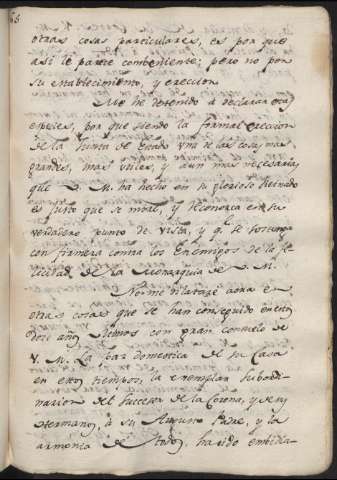 otras cosas particulares, es por que
asi le parece combeniente; pero no por
su establecimiento, y ereccion
Me he detenido a declarar estas
especies, por que siendo la formal ereccion
de la Junta de Estado una de las cosas mas
grandes, mas utiles, y aun mas necesarias
que V. M. ha hecho en su glorioso Reinado
es justo que se mire, y reconozca en su
verdadero punto de vista, y q.e se sostenga
con firmeza contra los Enemigos de la fe
licidad de la Monarquia de V. M.
No me dilataré aora en
otras cosas que se han conseguido en estos
doce años. Hemos con gran consuelo de
V. M. la paz domestica de su Casa
en estos tiempos, la exemplar subordi-
nacion del sucesor de la Corona, y de sus
Hermanos, á su Augusto Padre, y la
armonia de todos, ha sido embidia-